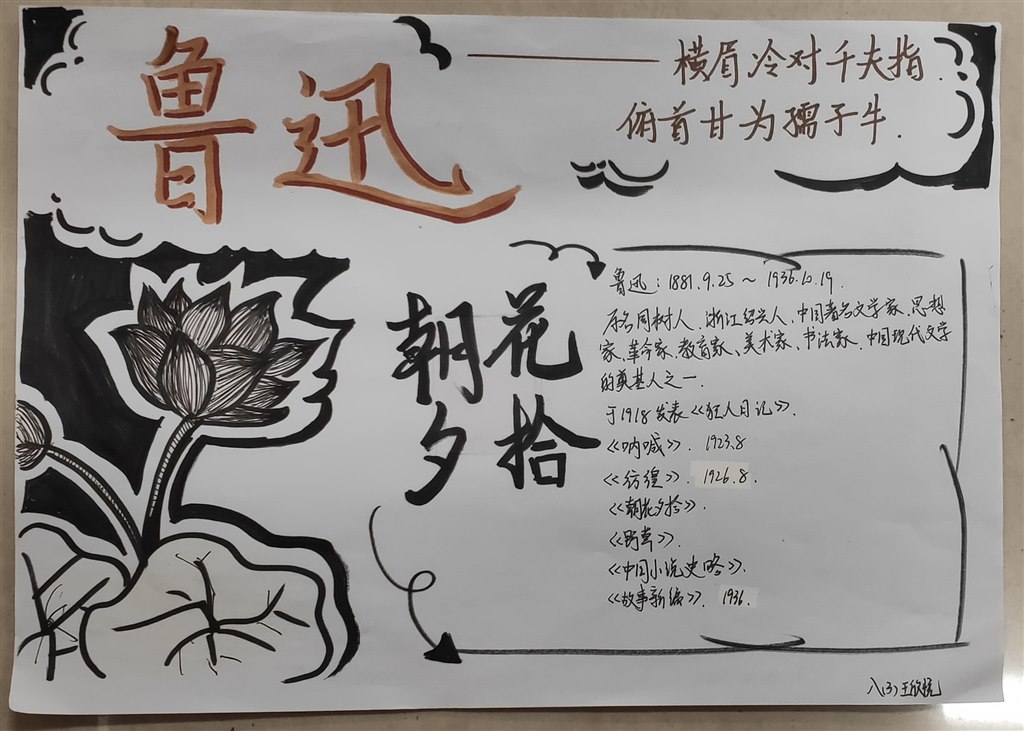 鲁迅
横眉冷对千夫指.
俯首甘为孺子牛.
朝花
夕拾
鲁迅：1881.9.25～1936.10.19.
原名周树人、浙江绍兴人、中国著名文学家、思想
家、革命家、教育家、美术家、书法家、中国现代文学
的奠基人之一.
于1918发表《狂人日记》.
《呐喊》. 1923.8
《彷徨》. 1926.8.
《朝花夕拾》.
《野草》.
《中国小说史略》.
《故事新编》. 1936.
八(3)王欣悦